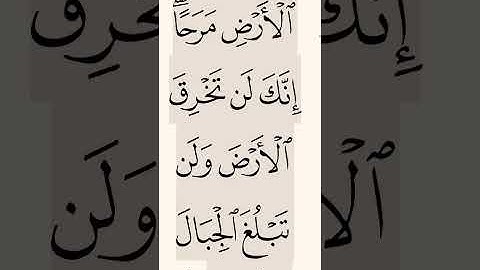 ٱلْأَرْضِ مَرَحًاۖ
إِنَّكَ لَن تَخْرِقَ
ٱلْأَرْضَ وَلَن
تَبْلُغَ ٱلْجِبَالَ